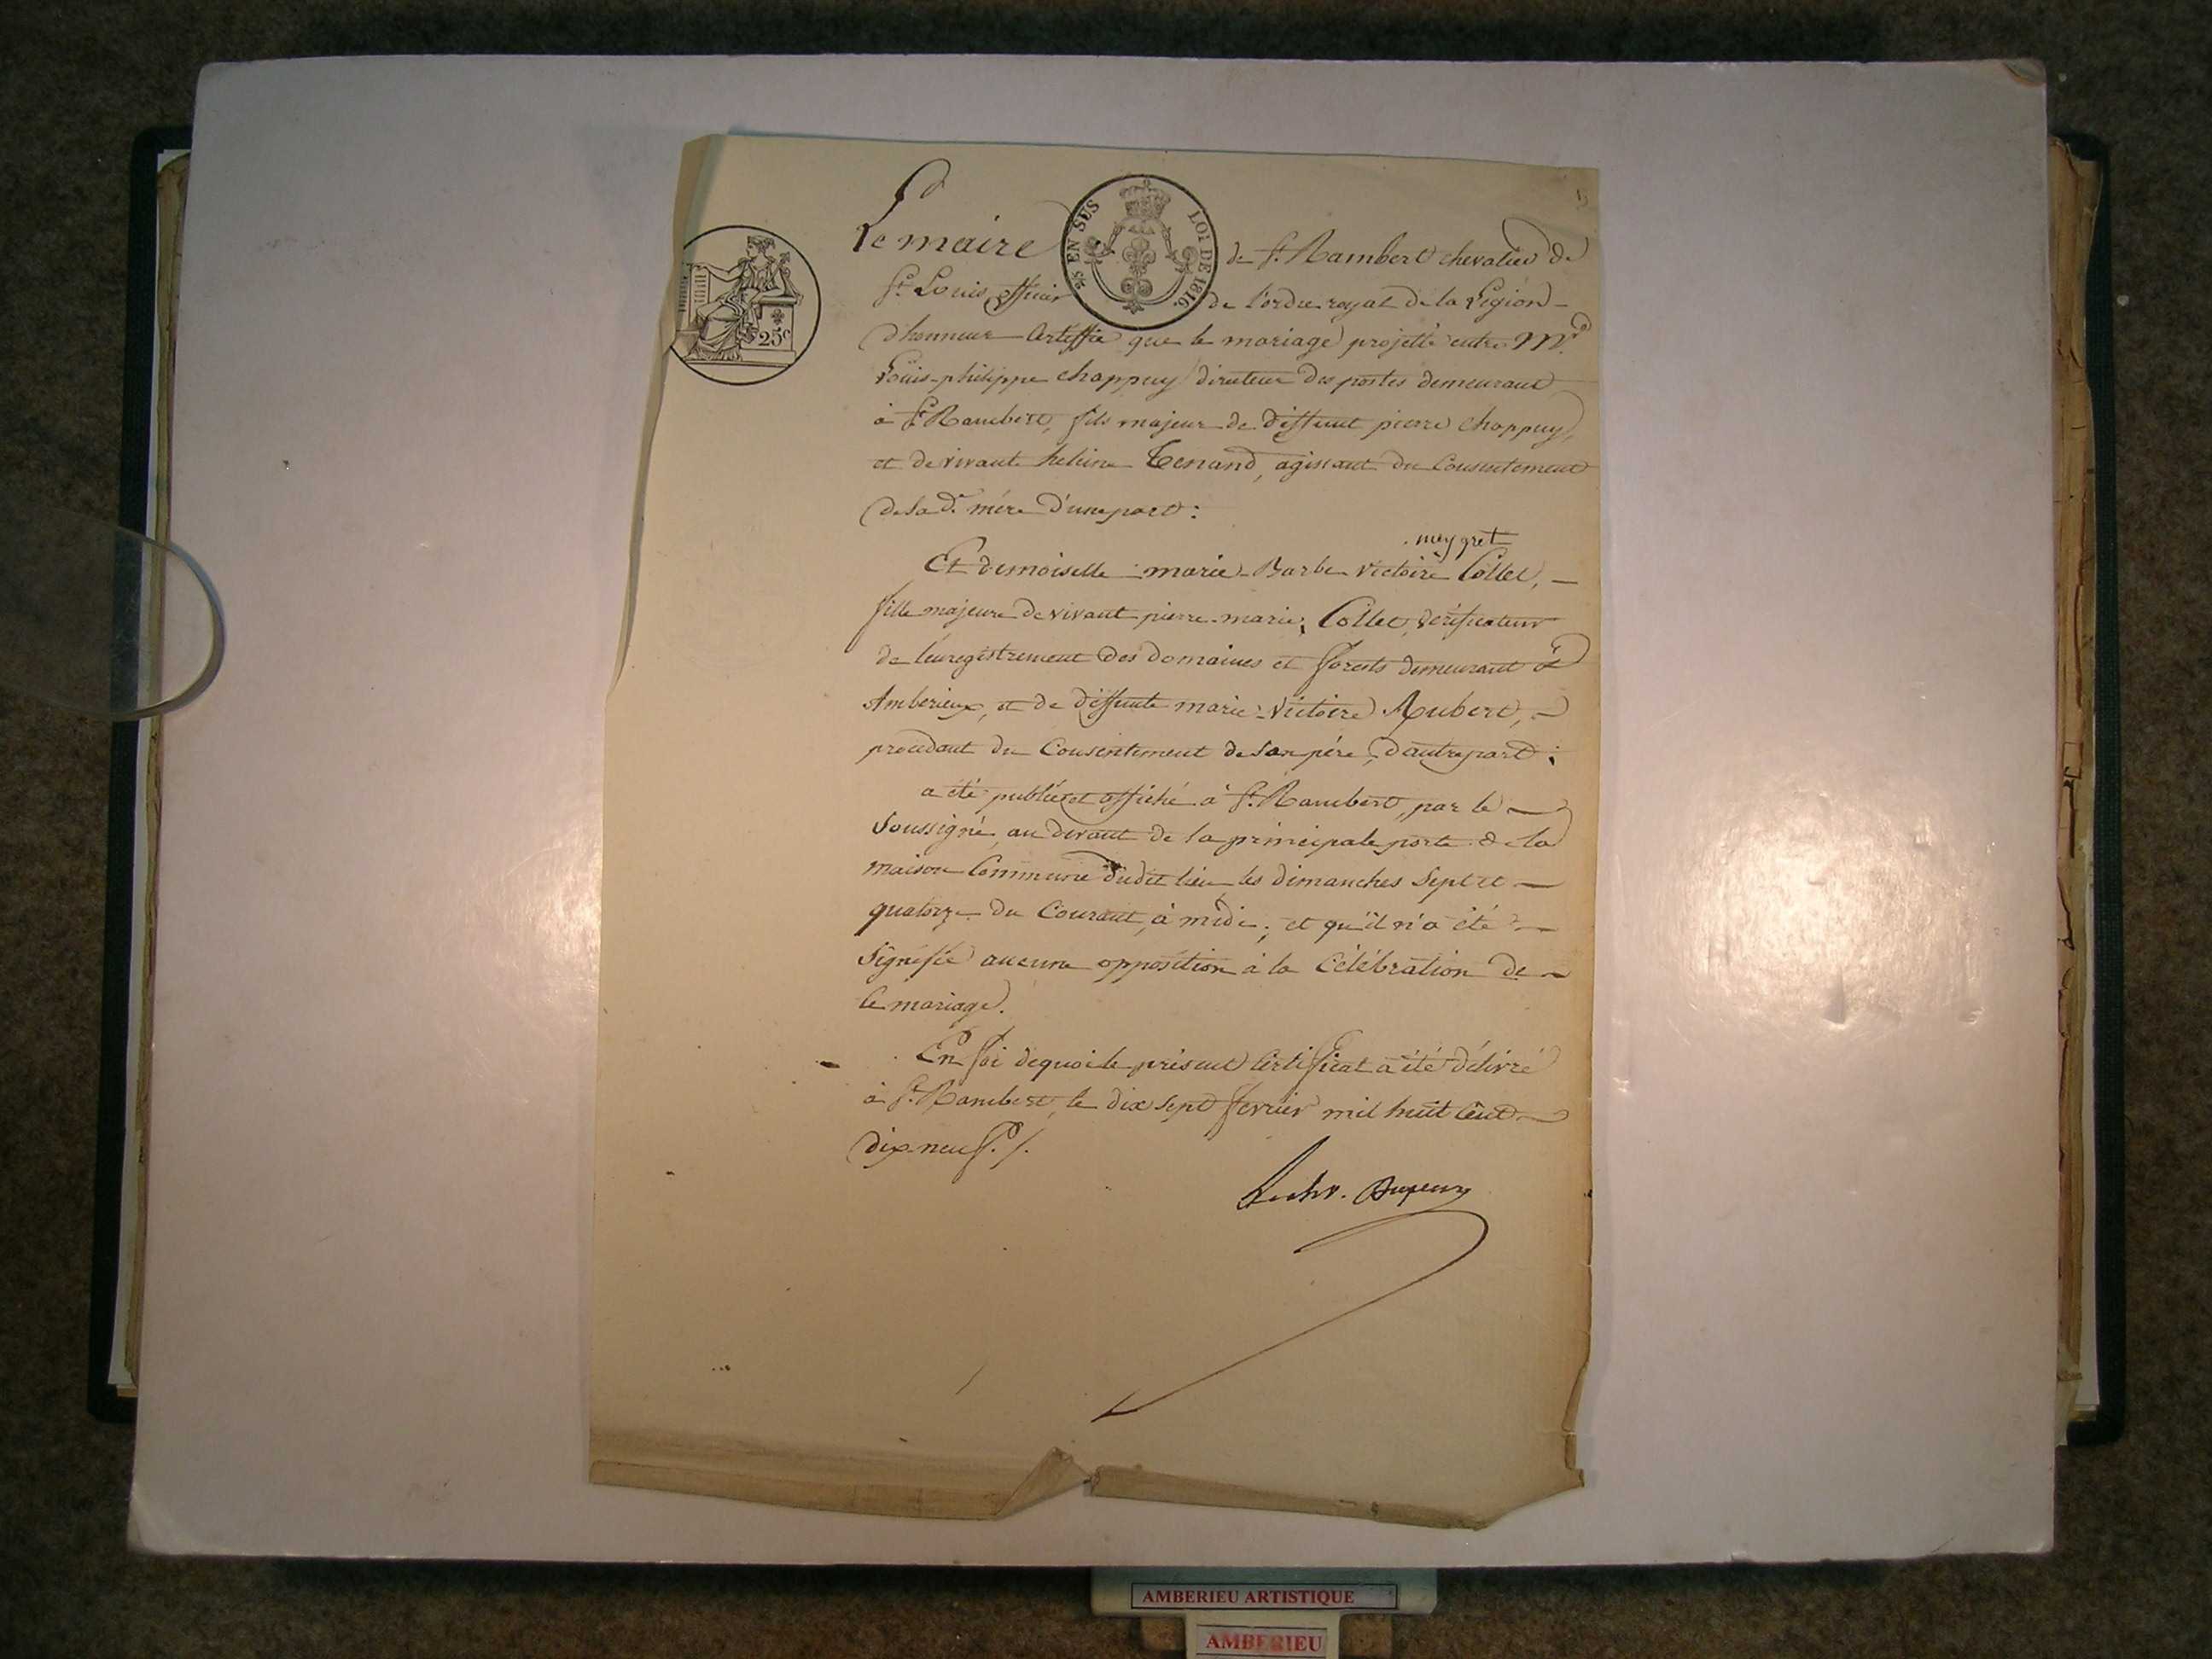 Le maire de St. Rambert chevalier de
St. Louis officier de l'ordre royal de la Légion
d'honneur Certiffie que le mariage projetté entre Mr.
Louis-philippe chappuy directeur des postes demeurant
à St Rambert, fils majeur de deffunt pierre chappuy,
et de vivante helein Tenand, agissant du Consentement
de sa de. mère d'une part :
meygret
Et demoiselle marie-Barbe victoire Collet,
fille majeure de vivant pierre-marie, Collet, vérificateur
de l'enregistrement des domaines et forests demeurant à
Amberieux, et de deffunte marie-Victoire Aubert,
procedant du Consentement de son père, d'autre part ;
a été publié et affiché à St. Rambert, par le
Soussigné, au devant de la principale porte de la
maison Commune dudit lieu, les dimanches Sept et
quatorze du Courant, à midi ; et qu'il n'a été
Signifié aucune opposition à la Célébration de
Ce mariage.
En foi de quoi le présent Certificat a été délivré
à St. Rambert, le dix Sept fevrier mil huit Cent
dix-neuf ./.
Le chr.
EN SUS
LOI DE 1816.
25c
AMBERIEU ARTISTIQUE
AMBERIEU